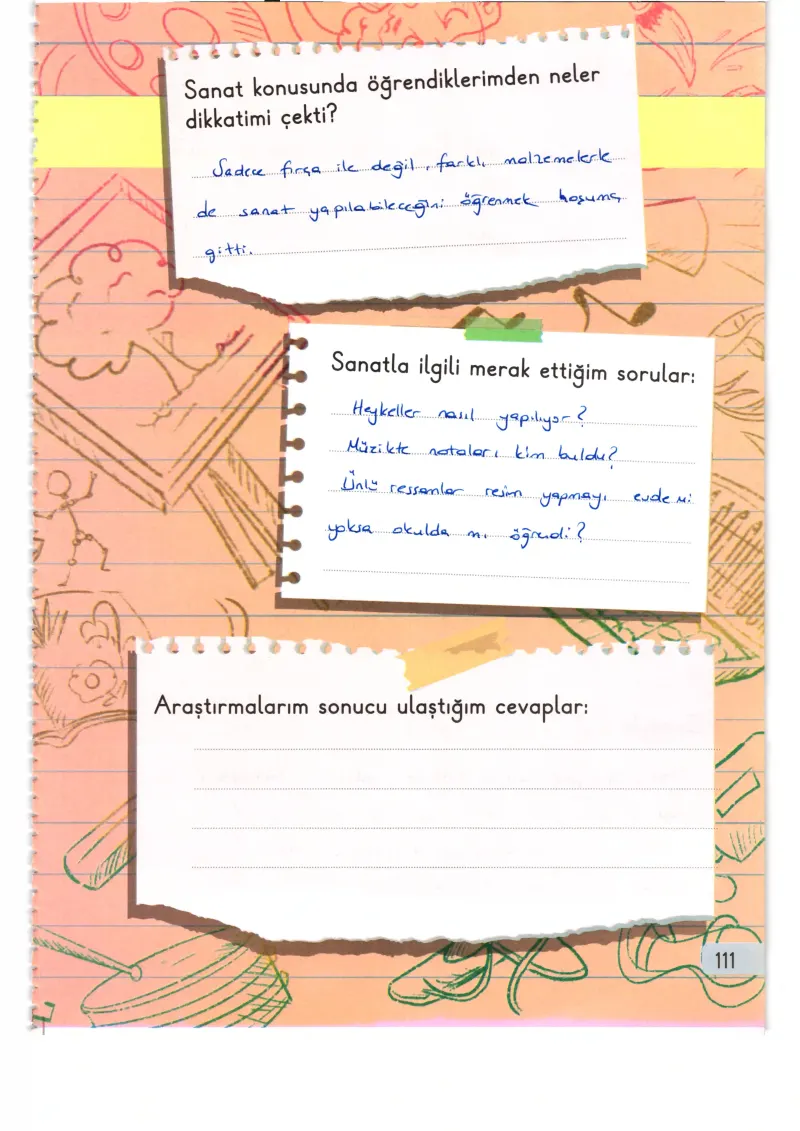 Sanat konusunda öğrendiklerimden neler
dikkatimi çekti?
Sadece fırça ile değil, farklı malzemelerle
de sanat yapılabileceğini öğrenmek hoşuma
gitti.
Sanatla ilgili merak ettiğim sorular:
Heykeller nasıl yapılıyor?
Müzikte notaları kim buldu?
Ünlü ressamlar resim yapmayı evde mi
yoksa okulda mı öğrendi?
Araştırmalarım sonucu ulaştığım cevaplar:
111